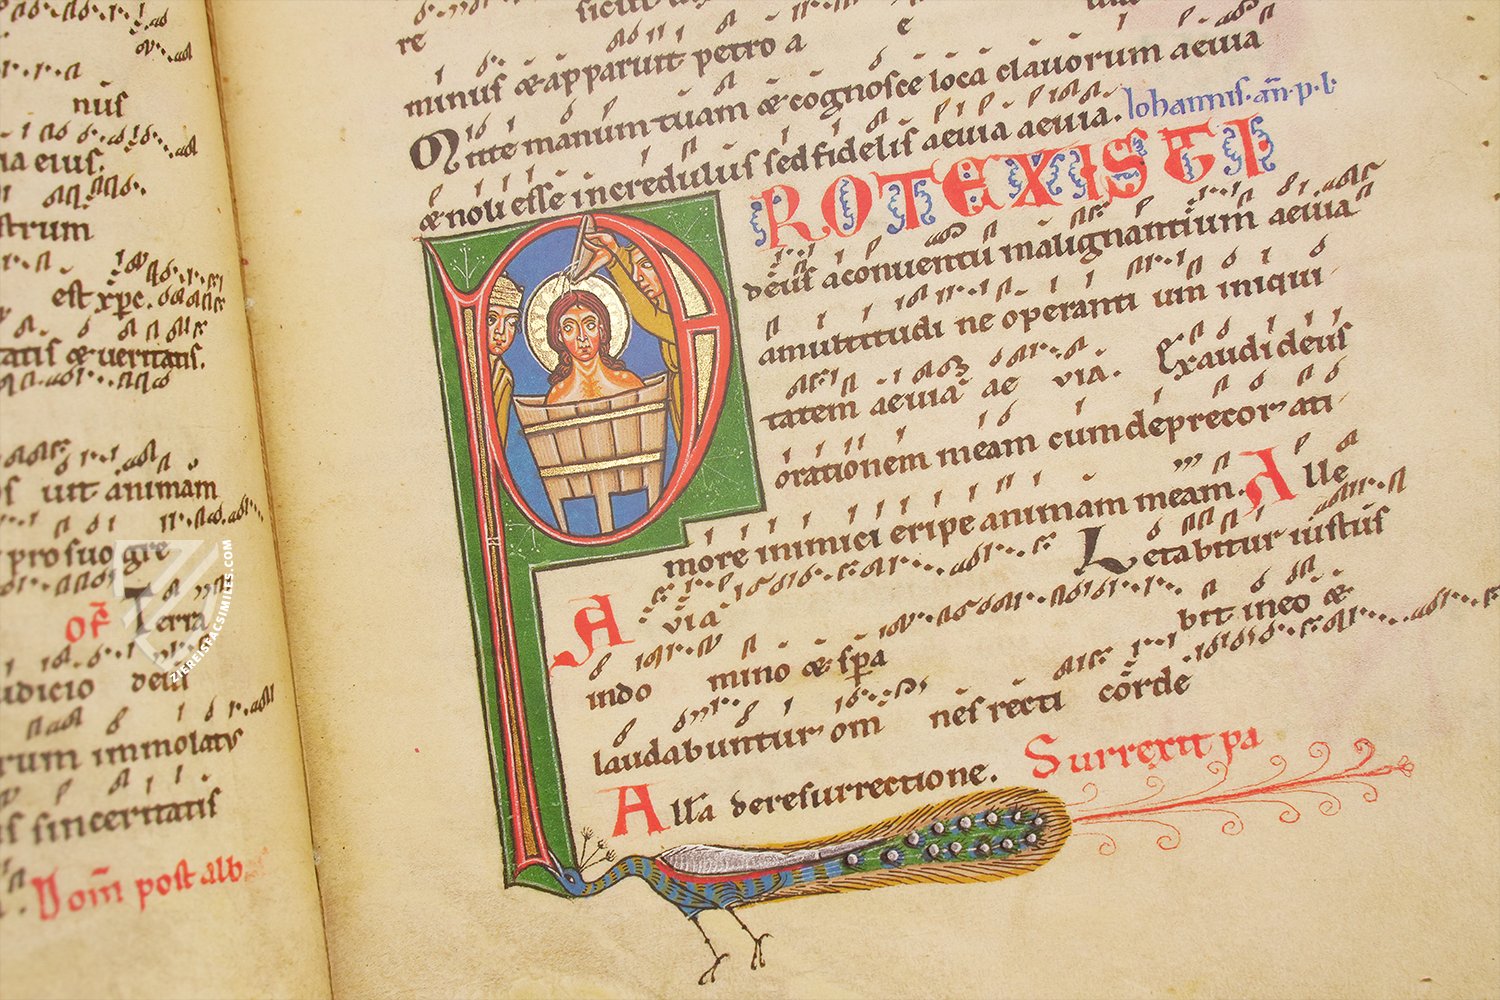 nus
ia eius.
strum
est xp̄c.
tatis & ueritatis.
uit animam
pro suo gre
of̄ Terra
udicio deus
rum immolatus
sinceritatis
Dom̄ post alb
re
minus & apparuit petro a e
Mitte manum tuam & cognosce loca clauorum aeuia
& noli esse incredulus sed fidelis aeuia aeuia. Iohannis. an̄. p. l.
PROTEXISTI
deus a conuentu malignantium aeuia
a multitudi ne operanti um iniqui
tatem aeuia ae via. Exaudi deus
orationem meam cum deprecor a ti
more inimici eripe animam meam. Alle
A via Letabitur iustus
in do mino & sp̄a bit in eo &
laudabuntur om̄ nes recti corde
All'a de resurrectione. Surrexit pa
ZIEREISFACSIMILES.COM